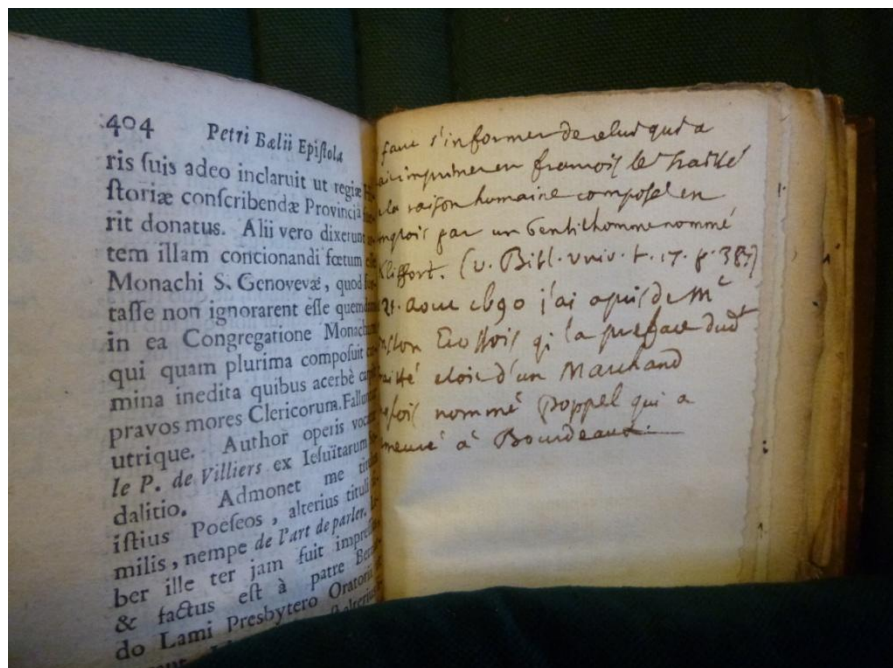 404 Petri Bælii Epistola
ris suis adeo inclaruit ut regiæ
ſtoriæ conſcribendæ Provinciâ
rit donatus. Alii vero dixerunt
tem illam concionandi fœtum eſſe
Monachi S. Genovevæ, quod
taſſe non ignorarent eſſe quemdam
in ea Congregatione Monachum
qui quam plurima compoſuit
mina inedita quibus acerbè
pravos mores Clericorum. Falluntur
utrique. Author operis vocatur
le P. de Villiers ex Ieſuïtarum
dalitio. Admonet me
iſtius Poëſeos, alterius tituli
milis, nempe de l'art de parler.
ber ille ter jam fuit
& factus eſt à patre
do Lami Presbytero
faut s'informer de celui qui a
imprimer en francois le traitté
la raison humaine composé en
par un Gentilhomme nommé
Kliffort. (v. Bibl. univ. t. 17. p. 387)
21. aout 1690 j'ai apris de Mr
Ecossois q; la preface dud
traitté etoit d'un Marchand
nommé Poppel qui a
demeuré à Bourdeaux.